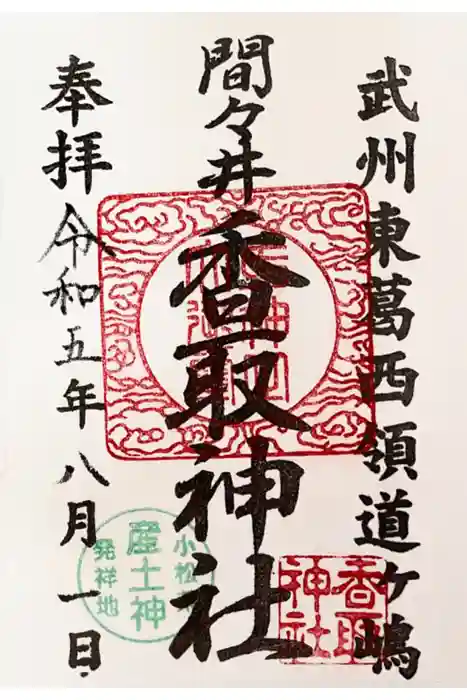 武州東葛西領道ヶ嶋
間々井
香取神社
奉拝 令和五年八月一日
香取
神社
産土神
発祥地